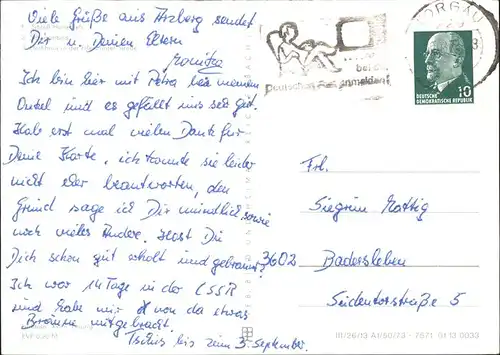 Viele Grüße aus Arzberg sendet
Dir u. Deinen Eltern
Monika
Ich bin hier mit Petra bei meinem
Onkel und es gefällt uns sehr gut.
Hab erst mal vielen Dank für
Deine Karte, ich konnte sie leider
nicht eher beantworten, den
Grund sage ich Dir mündlich, sowie
noch vieles Andere. Hast Du
Dich schon gut erholt und gebräunt?
Ich war 14 Tage in der ČSSR
und habe mir von da etwas
Bräune mitgebracht.
Tschüs bis zum 3. September.
TORGAU
bei der
Deutschen Post anmelden!
10
DEUTSCHE
DEMOKRATISCHE REPUBLIK
Frl.
Siegrun
3602 Badersleben
Seidentorstraße 5
III/26/13 A1/50/73 - 7671 01 13 0033